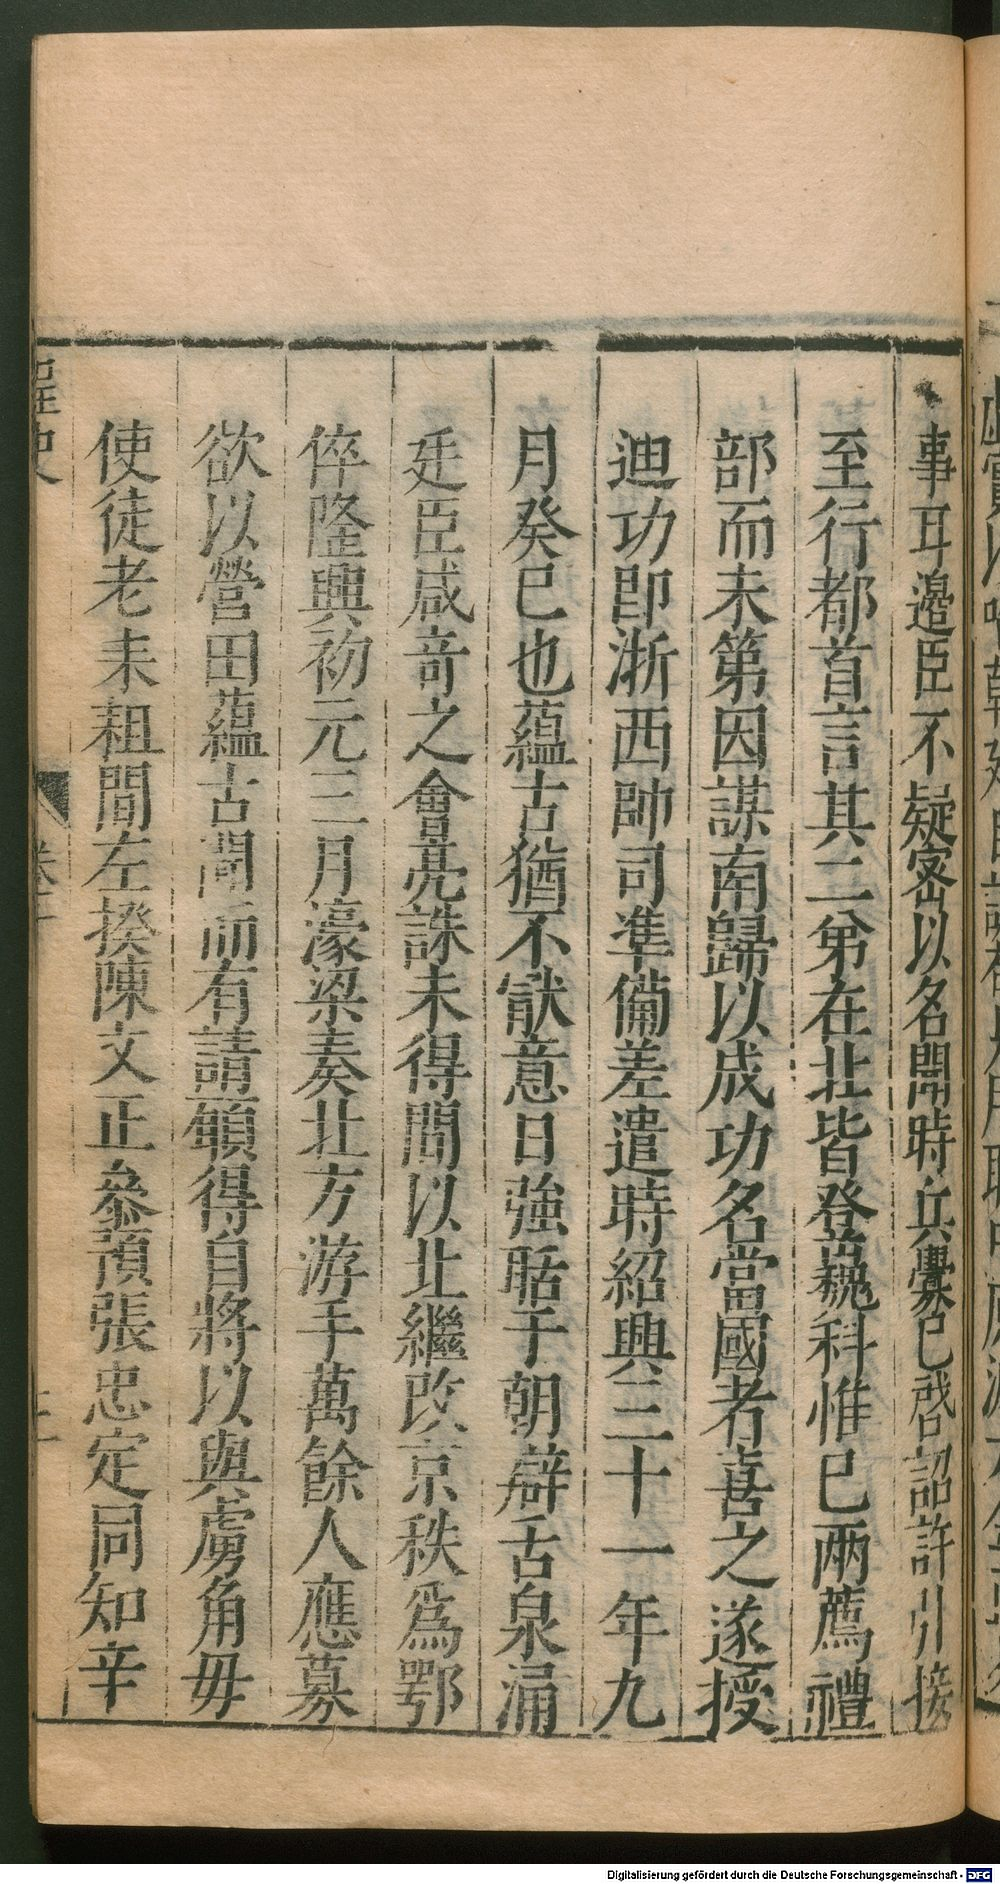 事耳邉臣不疑密以名聞時兵釁已啓詔許引接
至行都首言其二弟在北皆登巍科惟已兩薦禮
部而未第因謀南歸以成功名當國者喜之遂授
迪功郎浙西帥司準備差遣時紹興三十一年九
月癸巳也蘊古猶不猒意日強聒于朝辯舌泉涌
廷臣咸竒之會亮誅未得間以北繼改京秩爲鄂
倅隆興初元三月濠梁奏北方游手萬餘人應募
欲以營田蘊古聞而有請願得自將以與虜角毋
使徒老耒耜間左揆陳文正參預張忠定同知辛
桯史
卷十
Digitalisierung gefördert durch die Deutsche Forschungsgemeinschaft - DFG